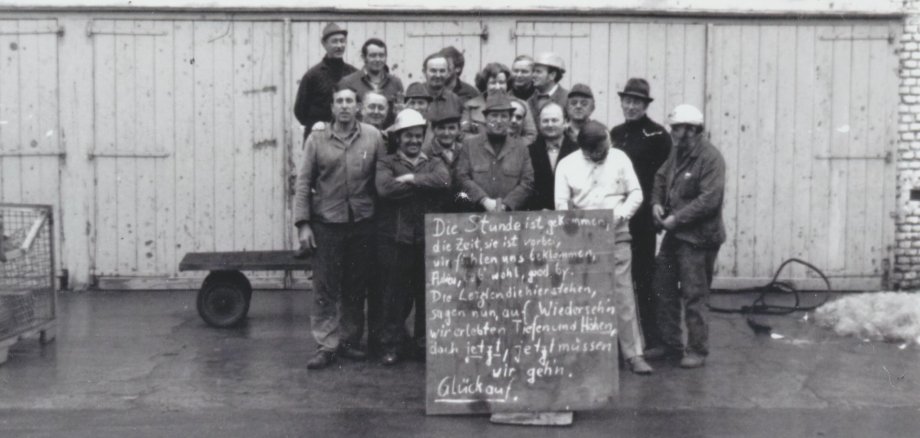 Die Stunde ist gekommen,
die Zeit, sie ist vorbei,
wir fühlen uns beklommen,
Adieu, leb' wohl, good by.
Die Letzten die hier stehen,
sagen nun, auf Wiederseh'n
wir erlebten Tiefen und Höhen,
doch jetzt, jetzt müssen
wir geh'n.
Glück auf.